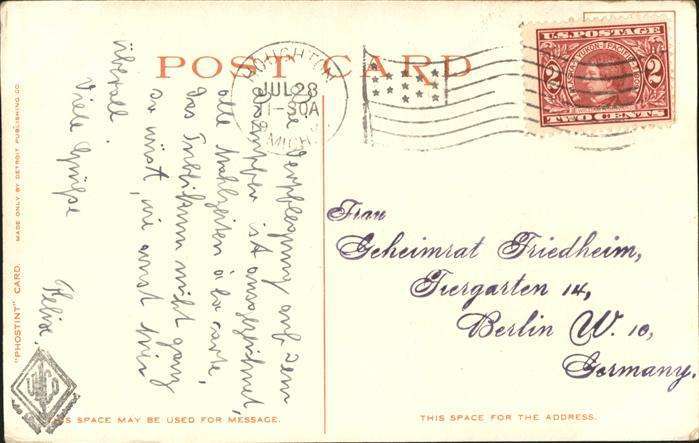 POST CARD
HOUGHTON
JUL 28
1-30A
MICH.
U.S. POSTAGE
ALASKA-YUKON-PACIFIC 1909
2 2
TWO CENTS
Die Verpflegung auf dem
Dampfer ist ausgezeichnet,
alle Mahlzeiten à la carte,
das Publikum nicht ganz
so wüst, wie sonst hier
überall.
Viele Grüße
Felix.
Frau
Geheimrat Friedheim,
Tiergarten 14,
Berlin W. 10,
Germany.
"PHOSTINT" CARD.
MADE ONLY BY DETROIT PUBLISHING CO.
THIS SPACE MAY BE USED FOR MESSAGE.
THIS SPACE FOR THE ADDRESS.